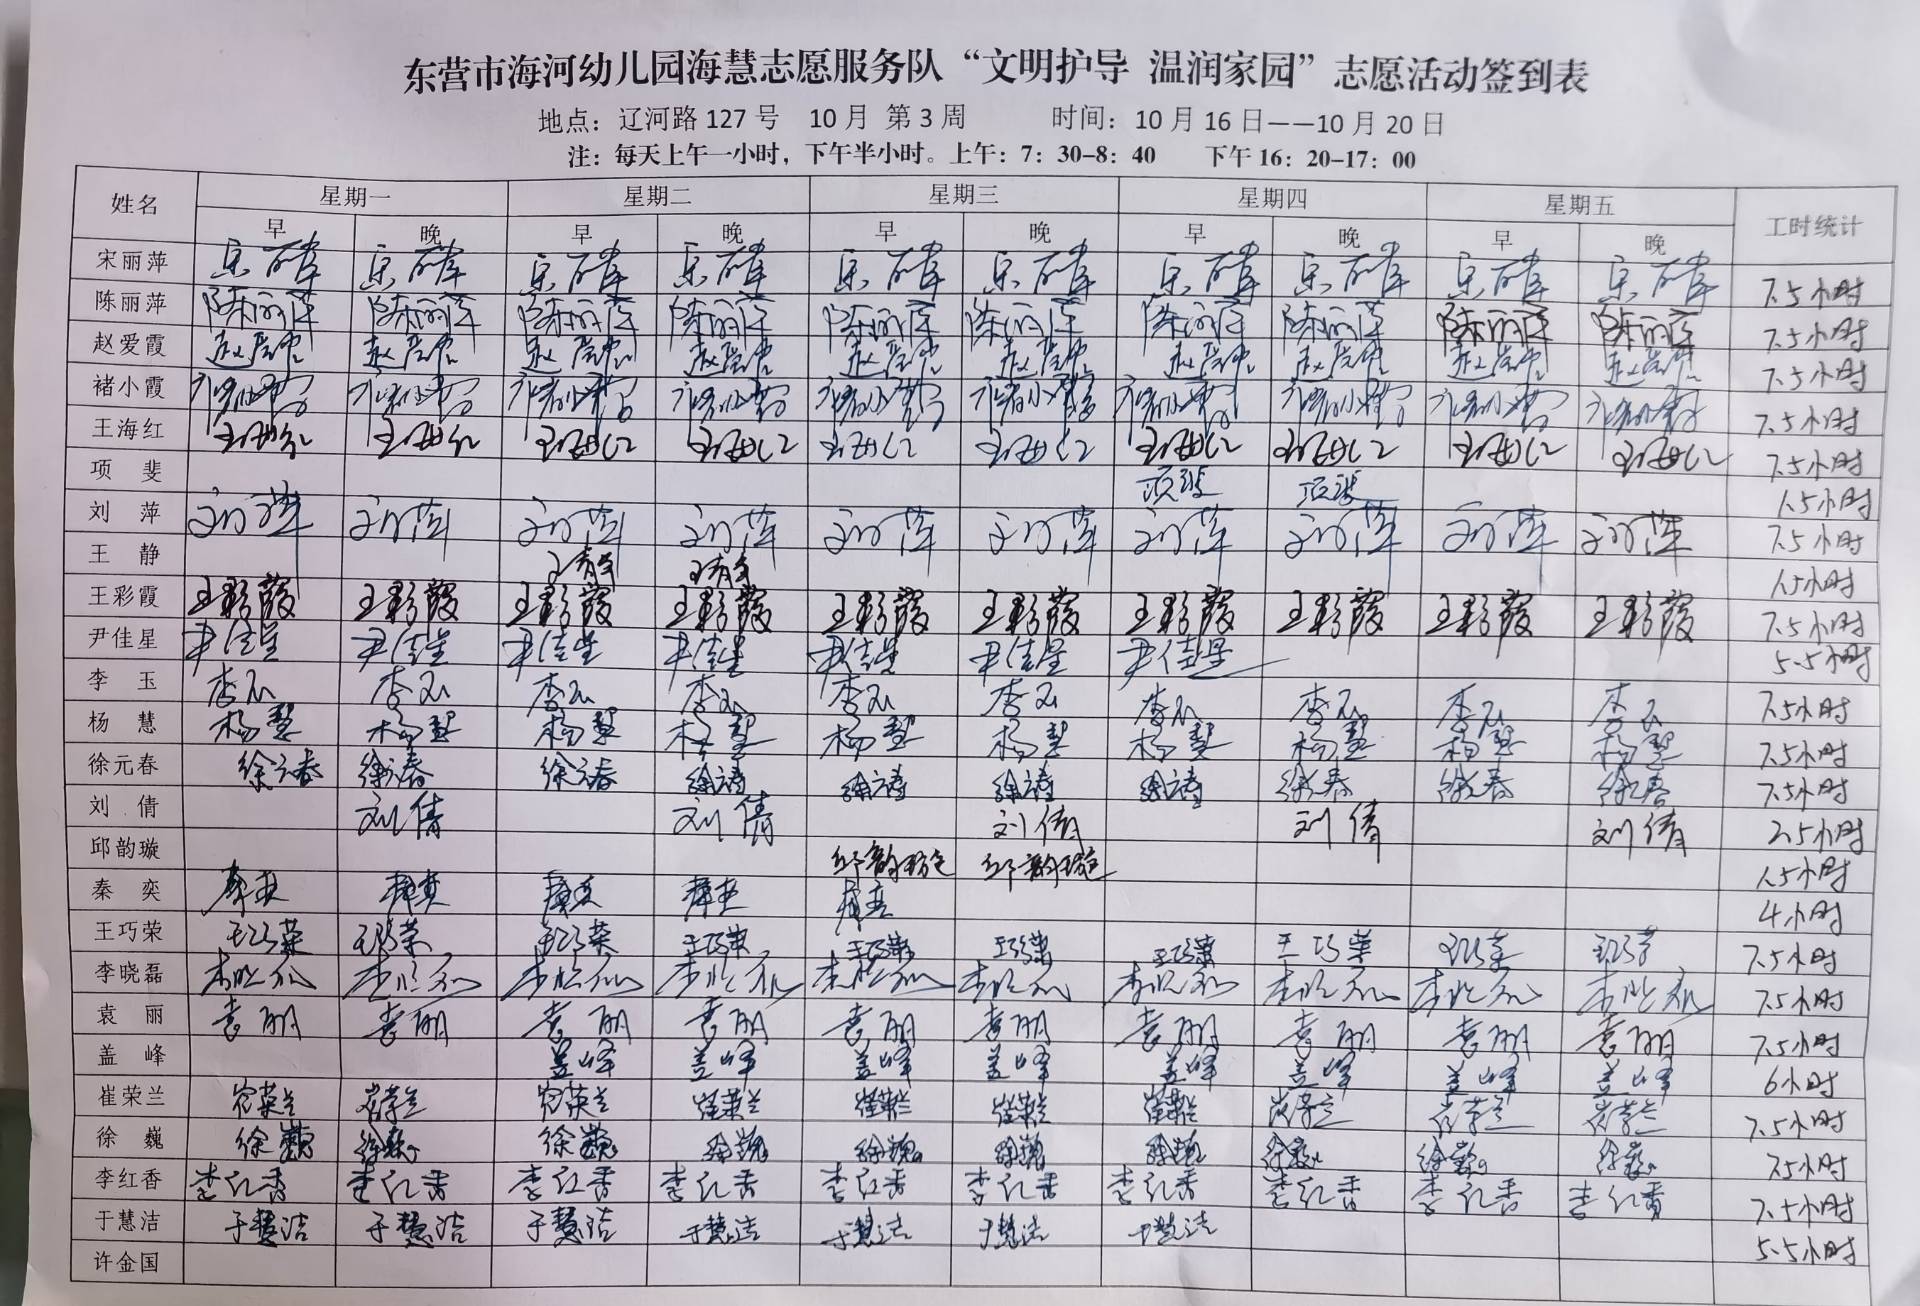 东营市海河幼儿园海慧志愿服务队“文明护导 温润家园”志愿活动签到表
地点：辽河路 127 号 10 月 第 3 周 时间：10 月 16 日——10 月 20 日
注：每天上午一小时，下午半小时。上午：7：30-8：40 下午 16：20-17：00
姓名 星期一 星期二 星期三 星期四 星期五 工时统计
早 晚 早 晚 早 晚 早 晚 早 晚
宋丽萍 宋丽萍 宋丽萍 宋丽萍 宋丽萍 宋丽萍 宋丽萍 宋丽萍 宋丽萍 宋丽萍 宋丽萍 7.5小时
陈丽萍 陈丽萍 陈丽萍 陈丽萍 陈丽萍 陈丽萍 陈丽萍 陈丽萍 陈丽萍 陈丽萍 陈丽萍 7.5小时
赵爱霞 赵爱霞 赵爱霞 赵爱霞 赵爱霞 赵爱霞 赵爱霞 赵爱霞 赵爱霞 赵爱霞 赵爱霞 7.5小时
褚小霞 褚小霞 褚小霞 褚小霞 褚小霞 褚小霞 褚小霞 褚小霞 褚小霞 褚小霞 褚小霞 7.5小时
王海红 王海红 王海红 王海红 王海红 王海红 王海红 王海红 王海红 王海红 王海红 7.5小时
项斐 项斐 项斐 1.5小时
刘萍 刘萍 刘萍 刘萍 刘萍 刘萍 刘萍 刘萍 刘萍 刘萍 刘萍 7.5小时
王静 王静 王静 1.5小时
王彩霞 王彩霞 王彩霞 王彩霞 王彩霞 王彩霞 王彩霞 王彩霞 王彩霞 王彩霞 王彩霞 7.5小时
尹佳星 尹佳星 尹佳星 尹佳星 尹佳星 尹佳星 尹佳星 尹佳星 5.5小时
李玉 李玉 李玉 李玉 李玉 李玉 李玉 李玉 李玉 李玉 李玉 7.5小时
杨慧 杨慧 杨慧 杨慧 杨慧 杨慧 杨慧 杨慧 杨慧 杨慧 杨慧 7.5小时
徐元春 徐元春 徐元春 徐元春 徐元春 徐元春 徐元春 徐元春 徐元春 徐元春 徐元春 7.5小时
刘倩 刘倩 刘倩 刘倩 刘倩 刘倩 2.5小时
邱韵璇 邱韵璇 邱韵璇 1.5小时
秦奕 秦奕 秦奕 秦奕 秦奕 秦奕 4小时
王巧荣 王巧荣 王巧荣 王巧荣 王巧荣 王巧荣 王巧荣 王巧荣 王巧荣 王巧荣 王巧荣 7.5小时
李晓磊 李晓磊 李晓磊 李晓磊 李晓磊 李晓磊 李晓磊 李晓磊 李晓磊 李晓磊 李晓磊 7.5小时
袁丽 袁丽 袁丽 袁丽 袁丽 袁丽 袁丽 袁丽 袁丽 袁丽 袁丽 7.5小时
盖峰 盖峰 盖峰 盖峰 盖峰 盖峰 盖峰 盖峰 盖峰 6小时
崔荣兰 崔荣兰 崔荣兰 崔荣兰 崔荣兰 崔荣兰 崔荣兰 崔荣兰 崔荣兰 崔荣兰 崔荣兰 7.5小时
徐巍 徐巍 徐巍 徐巍 徐巍 徐巍 徐巍 徐巍 徐巍 徐巍 徐巍 7.5小时
李红香 李红香 李红香 李红香 李红香 李红香 李红香 李红香 李红香 李红香 李红香 7.5小时
于慧洁 于慧洁 于慧洁 于慧洁 于慧洁 于慧洁 于慧洁 于慧洁 5.5小时
许金国